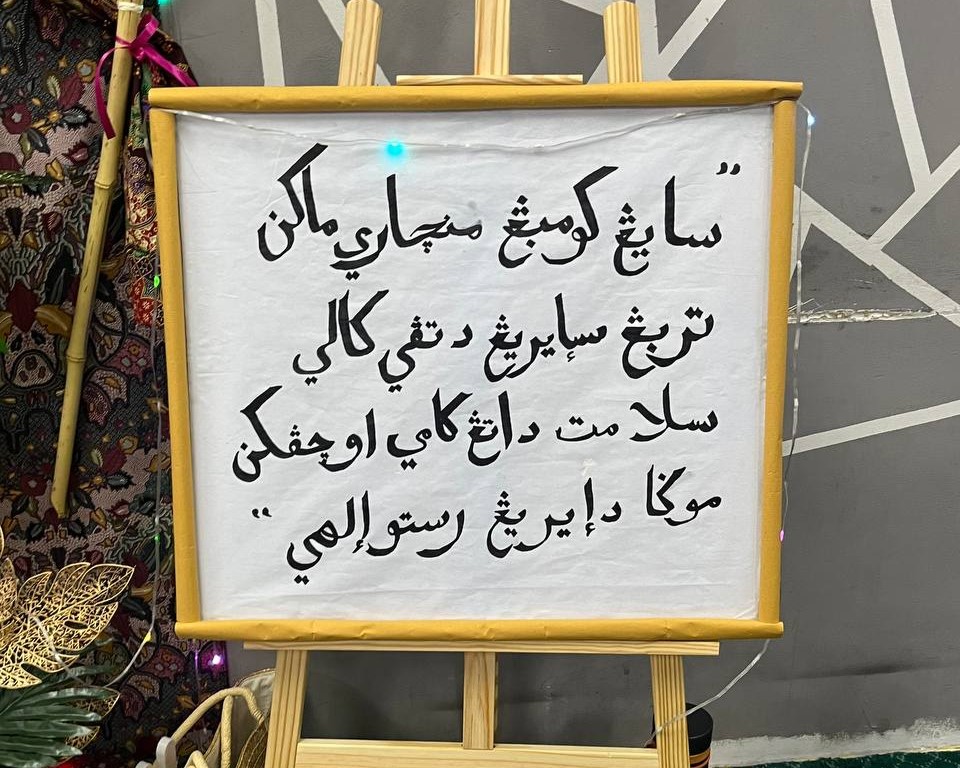 ”سايڠ كومبڠ منچاري ماكن
تربڠ سإيريڠ د تڤي كالي
سلامت داتڠ كامي اوچڤكن
موݢا دإيريڠ رستو إلهي“